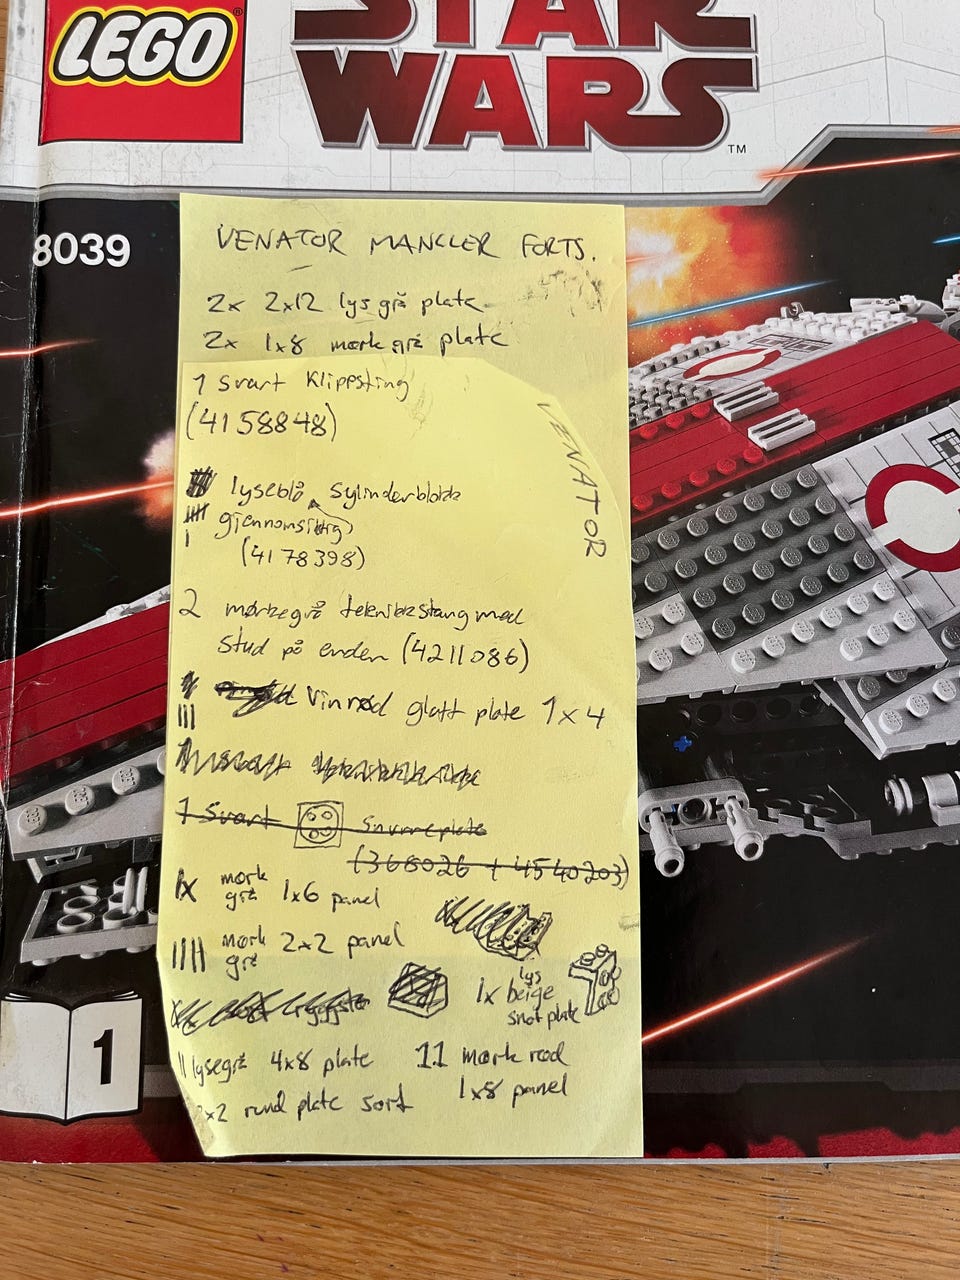 LEGO®
STAR
WARS™
8039
VENATOR MANGLER FORTS.
2x 2x12 lys grå plate
2x 1x8 mørk grå plate
1 svart Klippsting
(4158848)
VENATOR
lyseblå sylinderblokk
gjennomsiktig
(4178398)
2 mørkegrå teleniskstang med
stud på enden (4211086)
vinrød glatt plate 1x4
1 svart snurreplate
(368026 + 4540203)
1x mørk grå 1x6 panel
mørk grå 2x2 panel
1x lys beige
snot plate
lysegrå 4x8 plate
11 mørk rød
1x8 panel
x2 rund plate sort
1